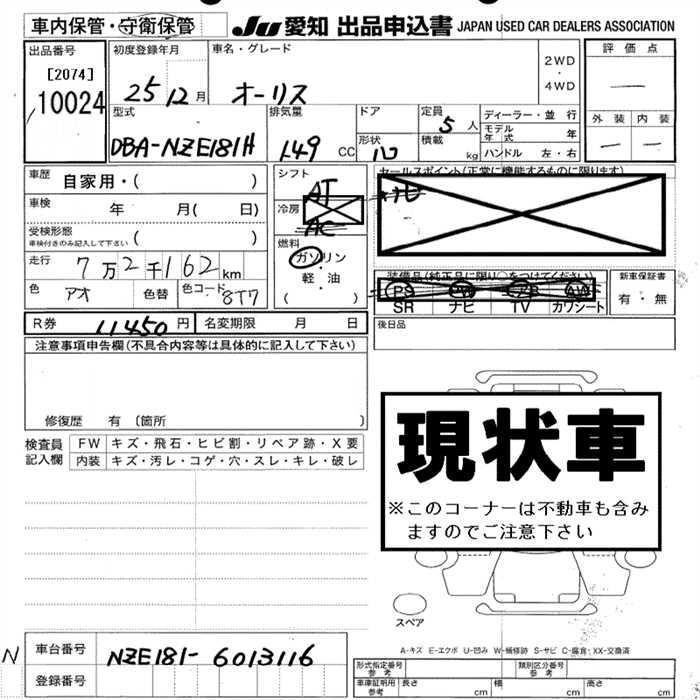 車内保管・守衛保管 JU 愛知 出品申込書 JAPAN USED CAR DEALERS ASSOCIATION
出品番号 初度登録年月 車名・グレード 2WD・4WD 評価点
[2074]
10024 25 12月 オーリス
外装 内装
型式 排気量 ドア 定員 5人 ディーラー・並行
DBA-NZE181H 149 CC 形状 積載 kg モデル年式 年
ハンドル 左・右
車歴 自家用・( ) シフト AT セールスポイント(正常に機能するものに限ります)
車検 年 月( 日) 冷房 AC
受検形態 車検付きのみ記入して下さい ( ) 燃料
走行 7万2千162km ガソリン・軽油 ( )
装備品(純正品に限り○をつけてください) 新車保証書
色 アオ 色替 色コード 8T7 PS PW AW 有・無
SR ナビ TV カワシート
R券 11450円 名変期限 月 日 後日品
注意事項申告欄(不具合内容等は具体的に記入して下さい)
修復歴 有 〔箇所 〕
現状車
※このコーナーは不動車も含み
ますのでご注意下さい
検査員記入欄 FW キズ・飛石・ヒビ割・リペア跡・X要
内装 キズ・汚レ・コゲ・穴・スレ・キレ・破レ
スペア
A-キズ E-エクボ U-凹み W-補修跡 S-サビ C-腐食 XX-交換済
N 車台番号 NZE181-6013116
登録番号
形式指定番号 参考 類別区分番号 参考
車庫証明用 参考 長さ cm 幅 cm 高さ cm